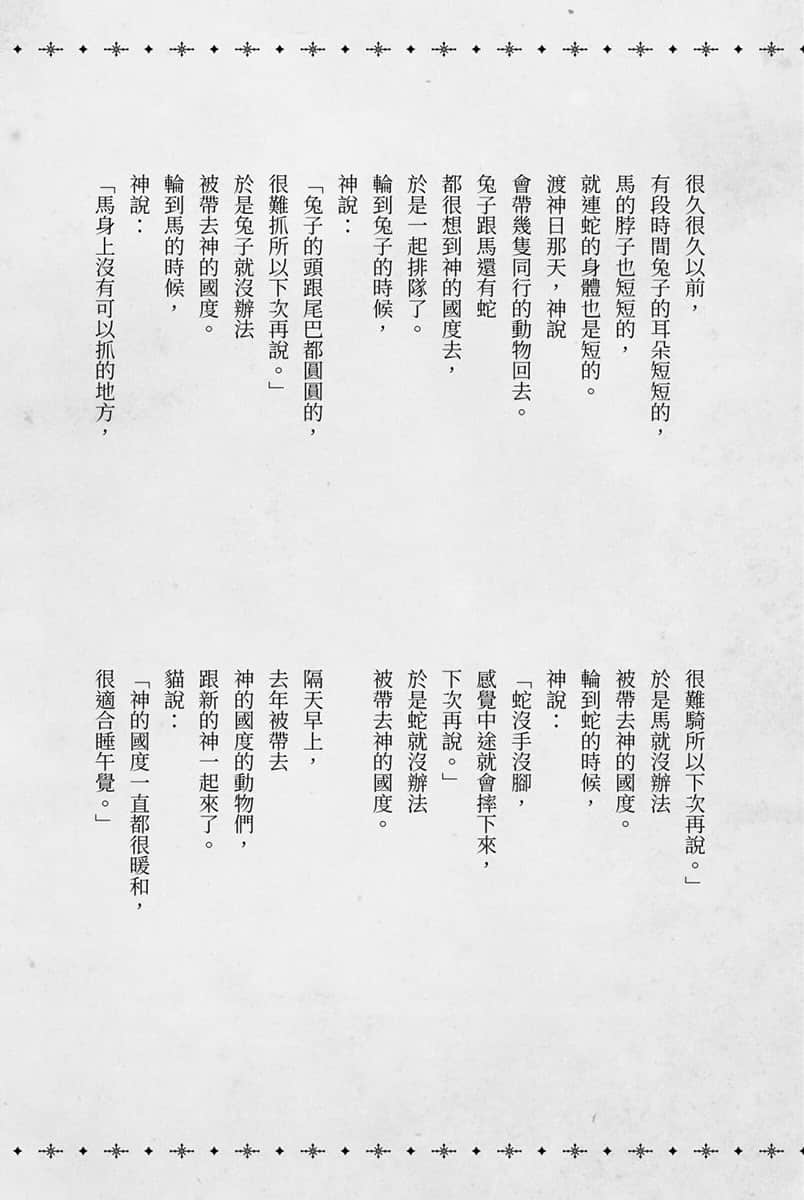 很久很久以前，
有段時間兔子的耳朵短短的，
馬的脖子也短短的，
就連蛇的身體也是短的。
渡神日那天，神說
會帶幾隻同行的動物回去。
兔子跟馬還有蛇
都很想到神的國度去，
於是一起排隊了。
輪到兔子的時候，
神說：
「兔子的頭跟尾巴都圓圓的，
很難抓所以下次再說。」
於是兔子就沒辦法
被帶去神的國度。
輪到馬的時候，
神說：
「馬身上沒有可以抓的地方，
很難騎所以下次再說。」
於是馬就沒辦法
被帶去神的國度。
輪到蛇的時候，
神說：
「蛇沒手沒腳，
感覺中途就會摔下來，
下次再說。」
於是蛇就沒辦法
被帶去神的國度。
隔天早上，
去年被帶去
神的國度的動物們，
跟新的神一起來了。
貓說：
「神的國度一直都很暖和，
很適合睡午覺。」